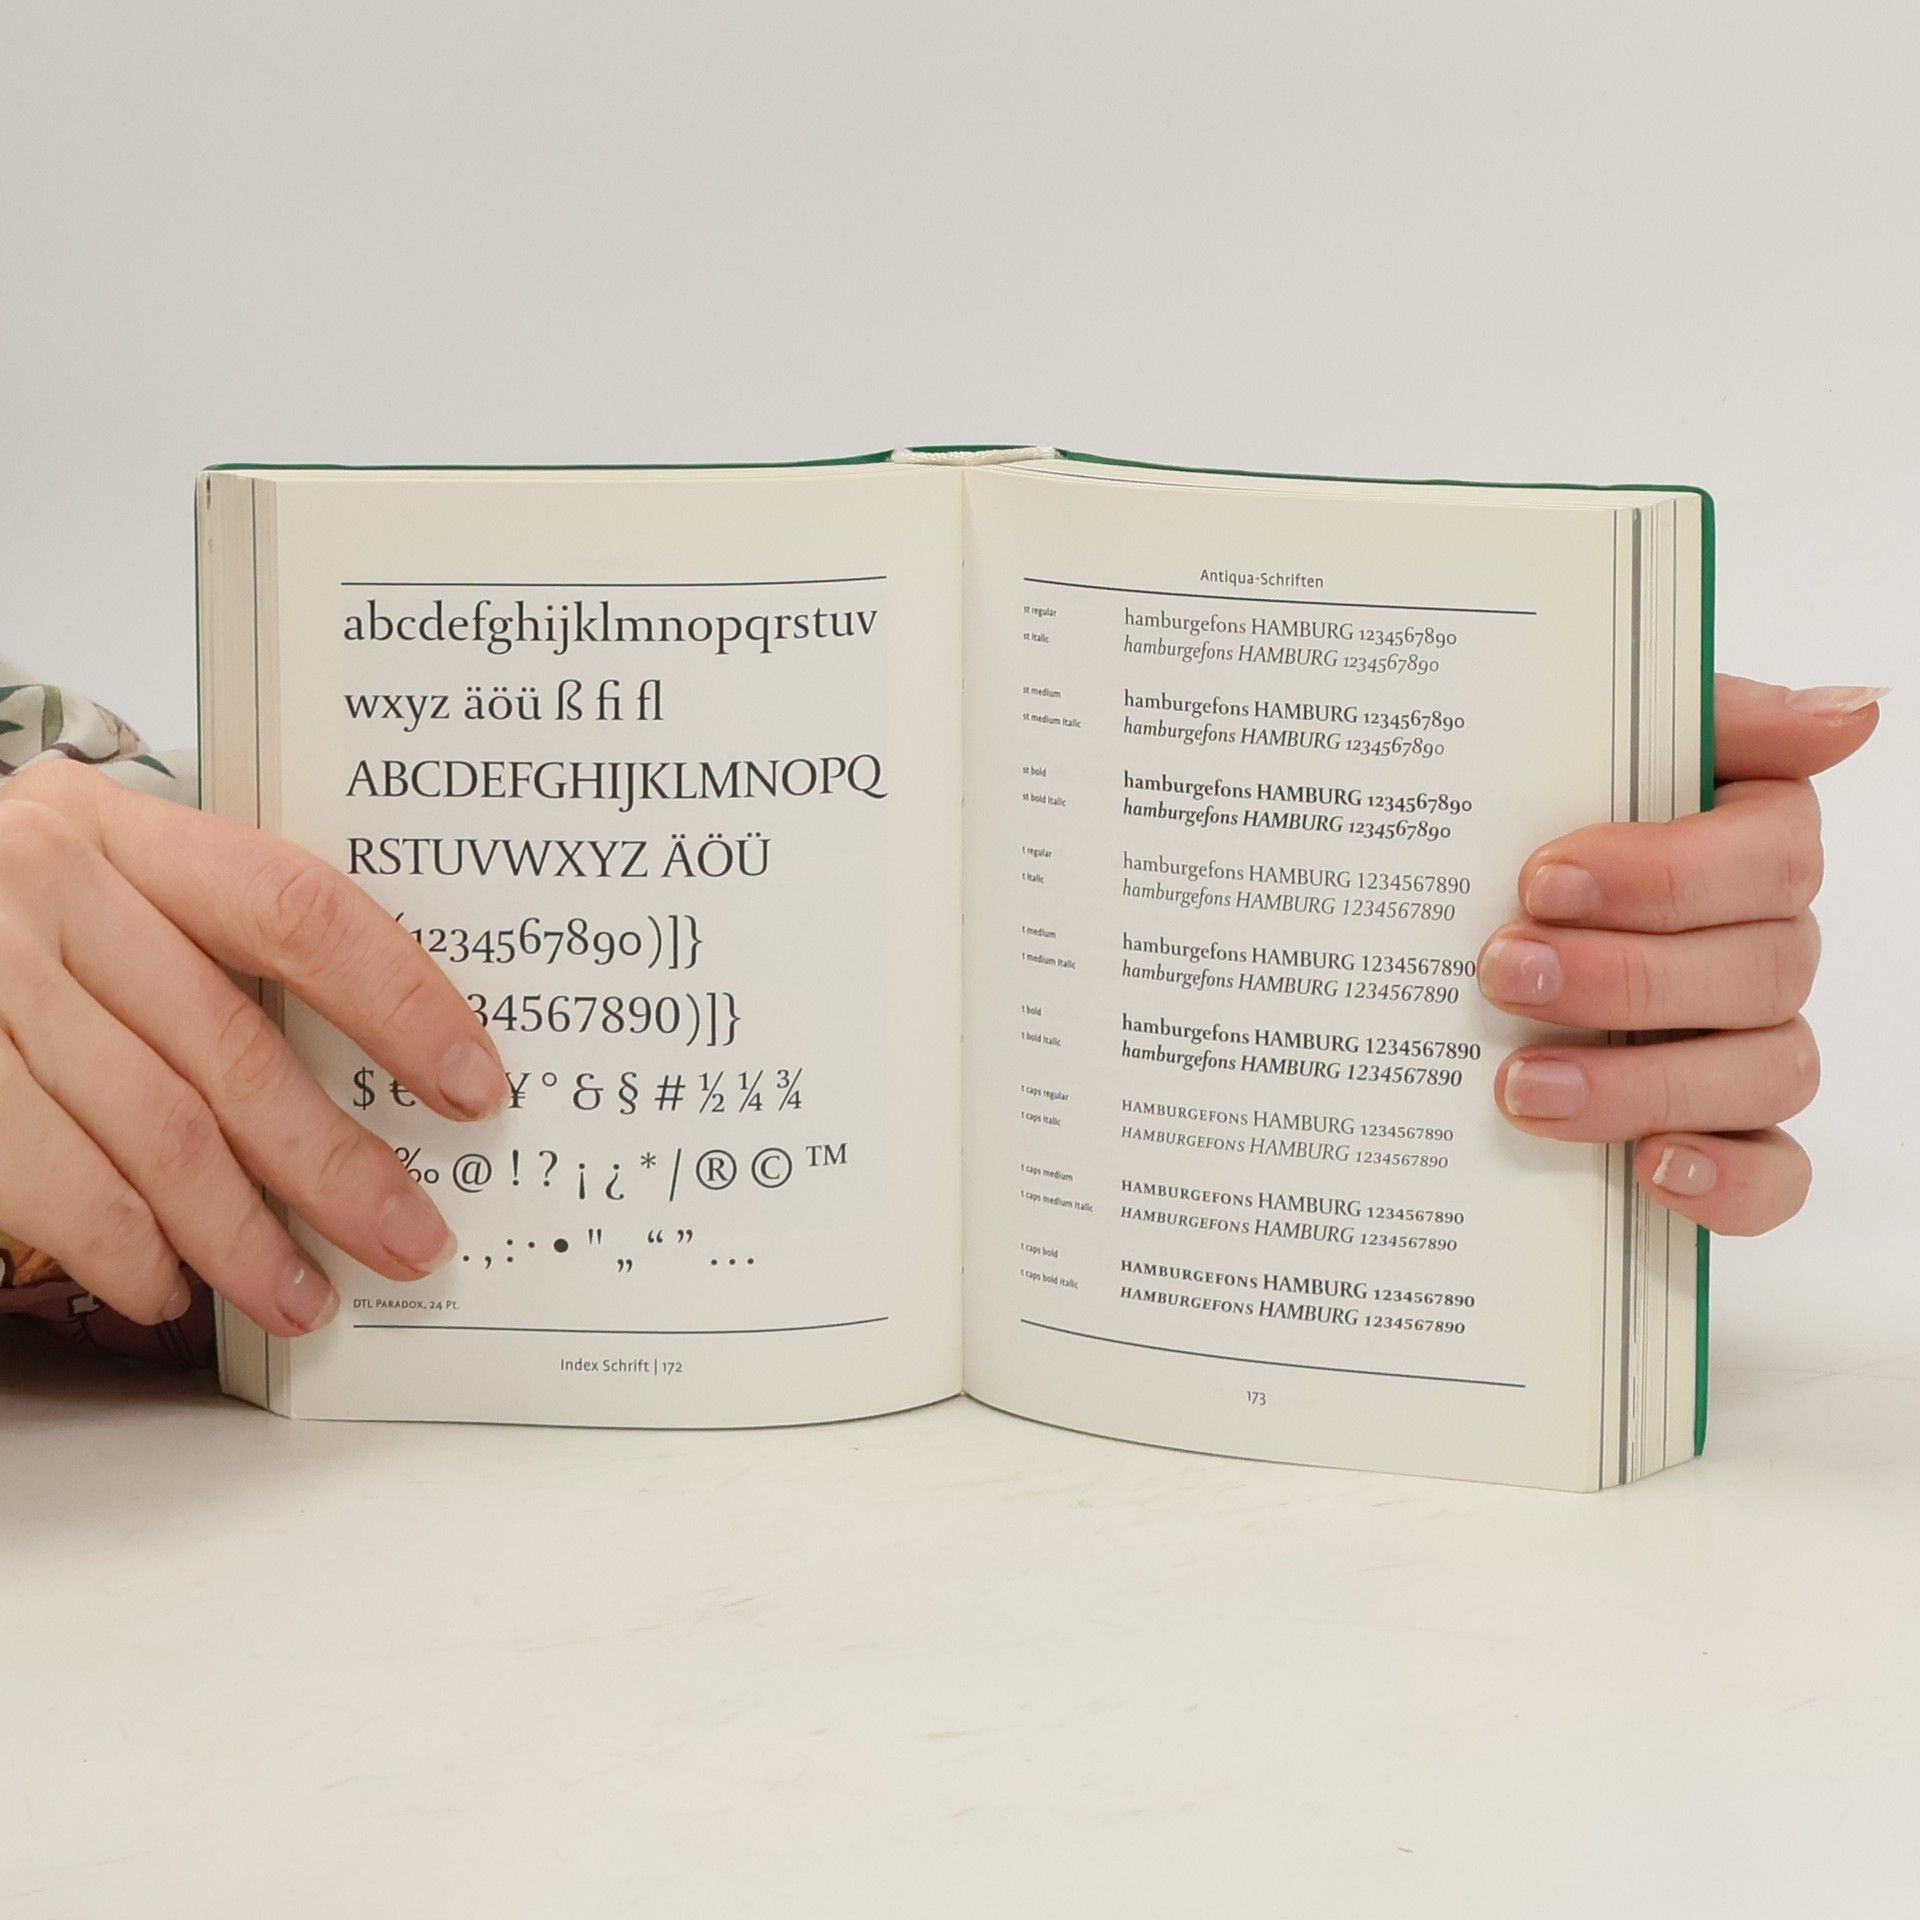 abcdefghijklmnopqrstuv
wxyz äöü ß fi fl
ABCDEFGHIJKLMNOPQ
RSTUVWXYZ ÄÖÜ
1234567890)]}
34567890)]}
$ € ¥ ° & § # ½ ¼ ¾
‰ @ ! ? ¡ ¿ * / ® © ™
. , : · • " „ “ ” …
DTL PARADOX, 24 Pt.
Index Schrift | 172
Antiqua-Schriften
st regular hamburgefons HAMBURG 1234567890
st italic hamburgefons HAMBURG 1234567890
st medium hamburgefons HAMBURG 1234567890
st medium italic hamburgefons HAMBURG 1234567890
st bold hamburgefons HAMBURG 1234567890
st bold italic hamburgefons HAMBURG 1234567890
t regular hamburgefons HAMBURG 1234567890
t italic hamburgefons HAMBURG 1234567890
t medium hamburgefons HAMBURG 1234567890
t medium italic hamburgefons HAMBURG 1234567890
t bold hamburgefons HAMBURG 1234567890
t bold italic hamburgefons HAMBURG 1234567890
t caps regular HAMBURGEFONS HAMBURG 1234567890
t caps italic HAMBURGEFONS HAMBURG 1234567890
t caps medium HAMBURGEFONS HAMBURG 1234567890
t caps medium italic HAMBURGEFONS HAMBURG 1234567890
t caps bold HAMBURGEFONS HAMBURG 1234567890
t caps bold italic HAMBURGEFONS HAMBURG 1234567890
173